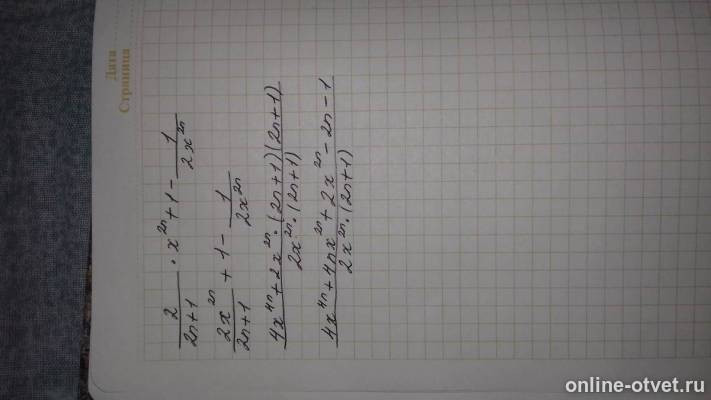 Дата
Страница
2/(2n+1) · x^(2n) + 1 - 1/(2x^(2n))
2x^(2n)/(2n+1) + 1 - 1/(2x^(2n))
(4x^(4n) + 2x^(2n) · (2n+1)(2n+1))/(2x^(2n) · (2n+1))
(4x^(4n) + 4nx^(2n) + 2x^(2n) - 2n - 1)/(2x^(2n) · (2n+1))
online-otvet.ru